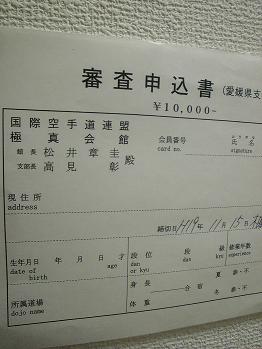 審査申込書 (愛媛県支
¥10,000-
国際空手道連盟
極真会館
館長 松井章圭 殿
支部長 高見 彰
会員番号 氏名
card no. signature
現住所
address
締切日 H19年 11月 15日
生年月日 年 月 日 才
date of birth age
段位 段 級 修業年数
dan or kyu dan kyu experience
身長 合宿 夏 参・不
体重 冬 参・不
所属道場
dojo name